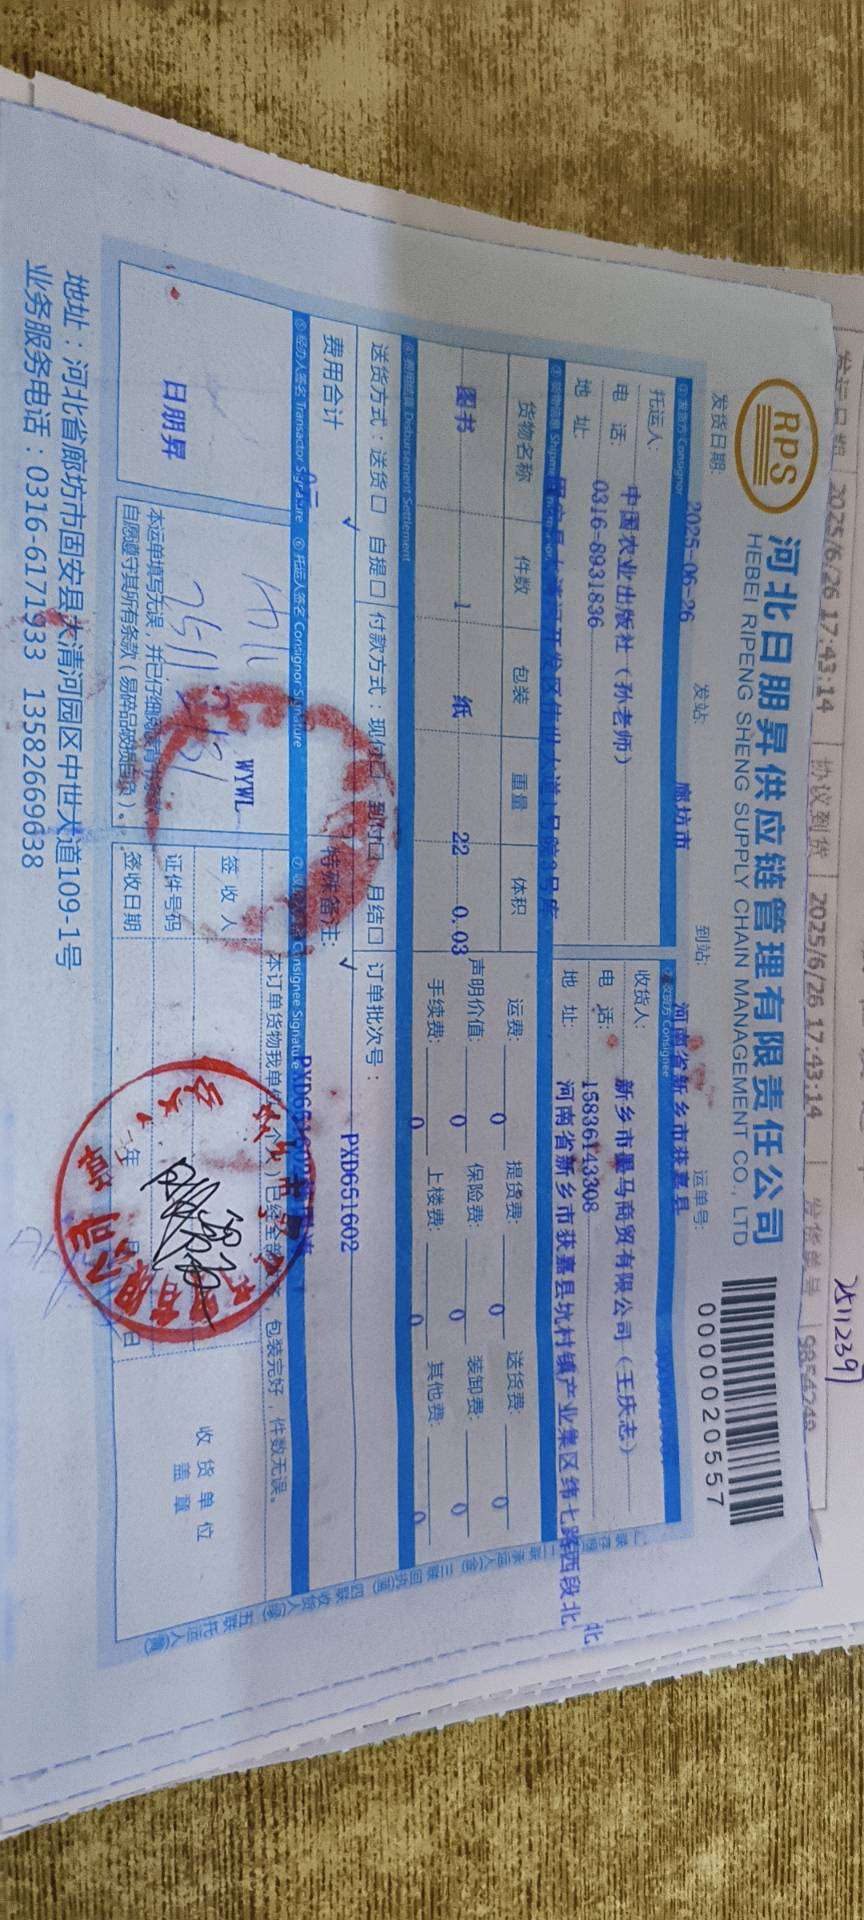 2511239
发运日期 2025/6/26 17:43:14 协议到货 2025/6/26 17:43:14 发货单号 9854748
RPS
河北日朋昇供应链管理有限责任公司
HEBEI RIPENG SHENG SUPPLY CHAIN MANAGEMENT CO., LTD
0000020557
发货日期: 2025-06-26 发站: 廊坊市 到站: 河南省新乡市获嘉县 运单号:
① 发货方 Consignor
收货方 Consignee
托运人: 中国农业出版社（孙老师）
收货人: 新乡市墨马商贸有限公司（王庆志）
电 话: 0316-8931836
电 话: 15836143308
地 址:
地 址: 河南省新乡市获嘉县坑村镇产业集区纬七路西段北
北
货物名称 件数 包装 重量 体积
图书 1 纸 22 0.03
运费: 0 提货费: 0 送货费: 0
声明价值: 0 保险费: 0 装卸费: 0
手续费: 0 上楼费: 0 其他费: 0
④ 费用结算 Disbursement Settlement
送货方式：送货□ 自提□ 付款方式：现付□ 到付□ 月结□ 订单批次号：
√ √ PXD651602
费用合计 特殊备注:
⑤ 经办人签名 Transactor Signature ⑥ 托运人签名 Consignor Signature Consignee Signature
日朋昇
WYWL
签收人
证件号码
签收日期 年 日
包装完好，件数无误。
收货单位
盖章
本运单填写无误，并已仔细
自愿遵守其所有条款
地址：河北省廊坊市固安县大清河园区中世大道109-1号
业务服务电话：0316-6171933 13582669638